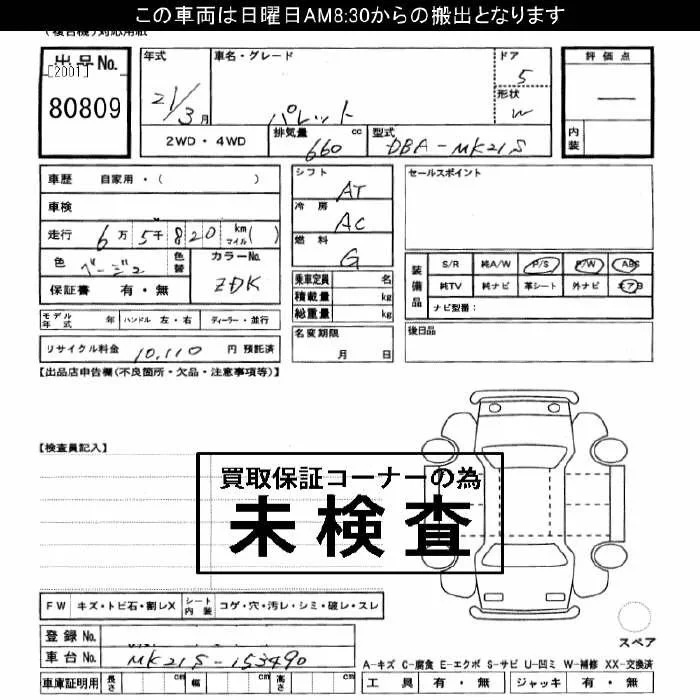 この車両は日曜日AM8:30からの搬出となります
(複合機)対応用紙
出品No. [2001] 80809
年式 21/3月
車名・グレード パレット
ドア 5
形状 W
評価点 —
内装
2WD・4WD
排気量 660 cc
型式 DBA-MK21S
車歴 自家用・( )
車検
走行 6万5千820 km マイル( )
色 ベージュ 色替
カラーNo. ZDK
保証書 有・無
シフト AT
冷房 AC
燃料 G
乗車定員 名
積載量 kg
総重量 kg
セールスポイント
装備品 S/R 純A/W P/S P/W ABS
純TV 純ナビ 革シート 外ナビ
ナビ型番:
モデル年式 年 ハンドル 左・右 ディーラー・並行
名変期限 月 日
後日品
リサイクル料金 10,110 円 預託済
【出品店申告欄(不良箇所・欠品・注意事項等)】
【検査員記入】
買取保証コーナーの為
未検査
FW キズ・トビ石・割レX シート内装 コゲ・穴・汚レ・シミ・破レ・スレ
登録No.
車台No. MK21S-153490
スペア
A-キズ C-腐食 E-エクボ S-サビ U-凹ミ W-補修 XX-交換済
車庫証明用 長さ cm 幅 cm 高さ cm
工具 有・無 ジャッキ 有・無